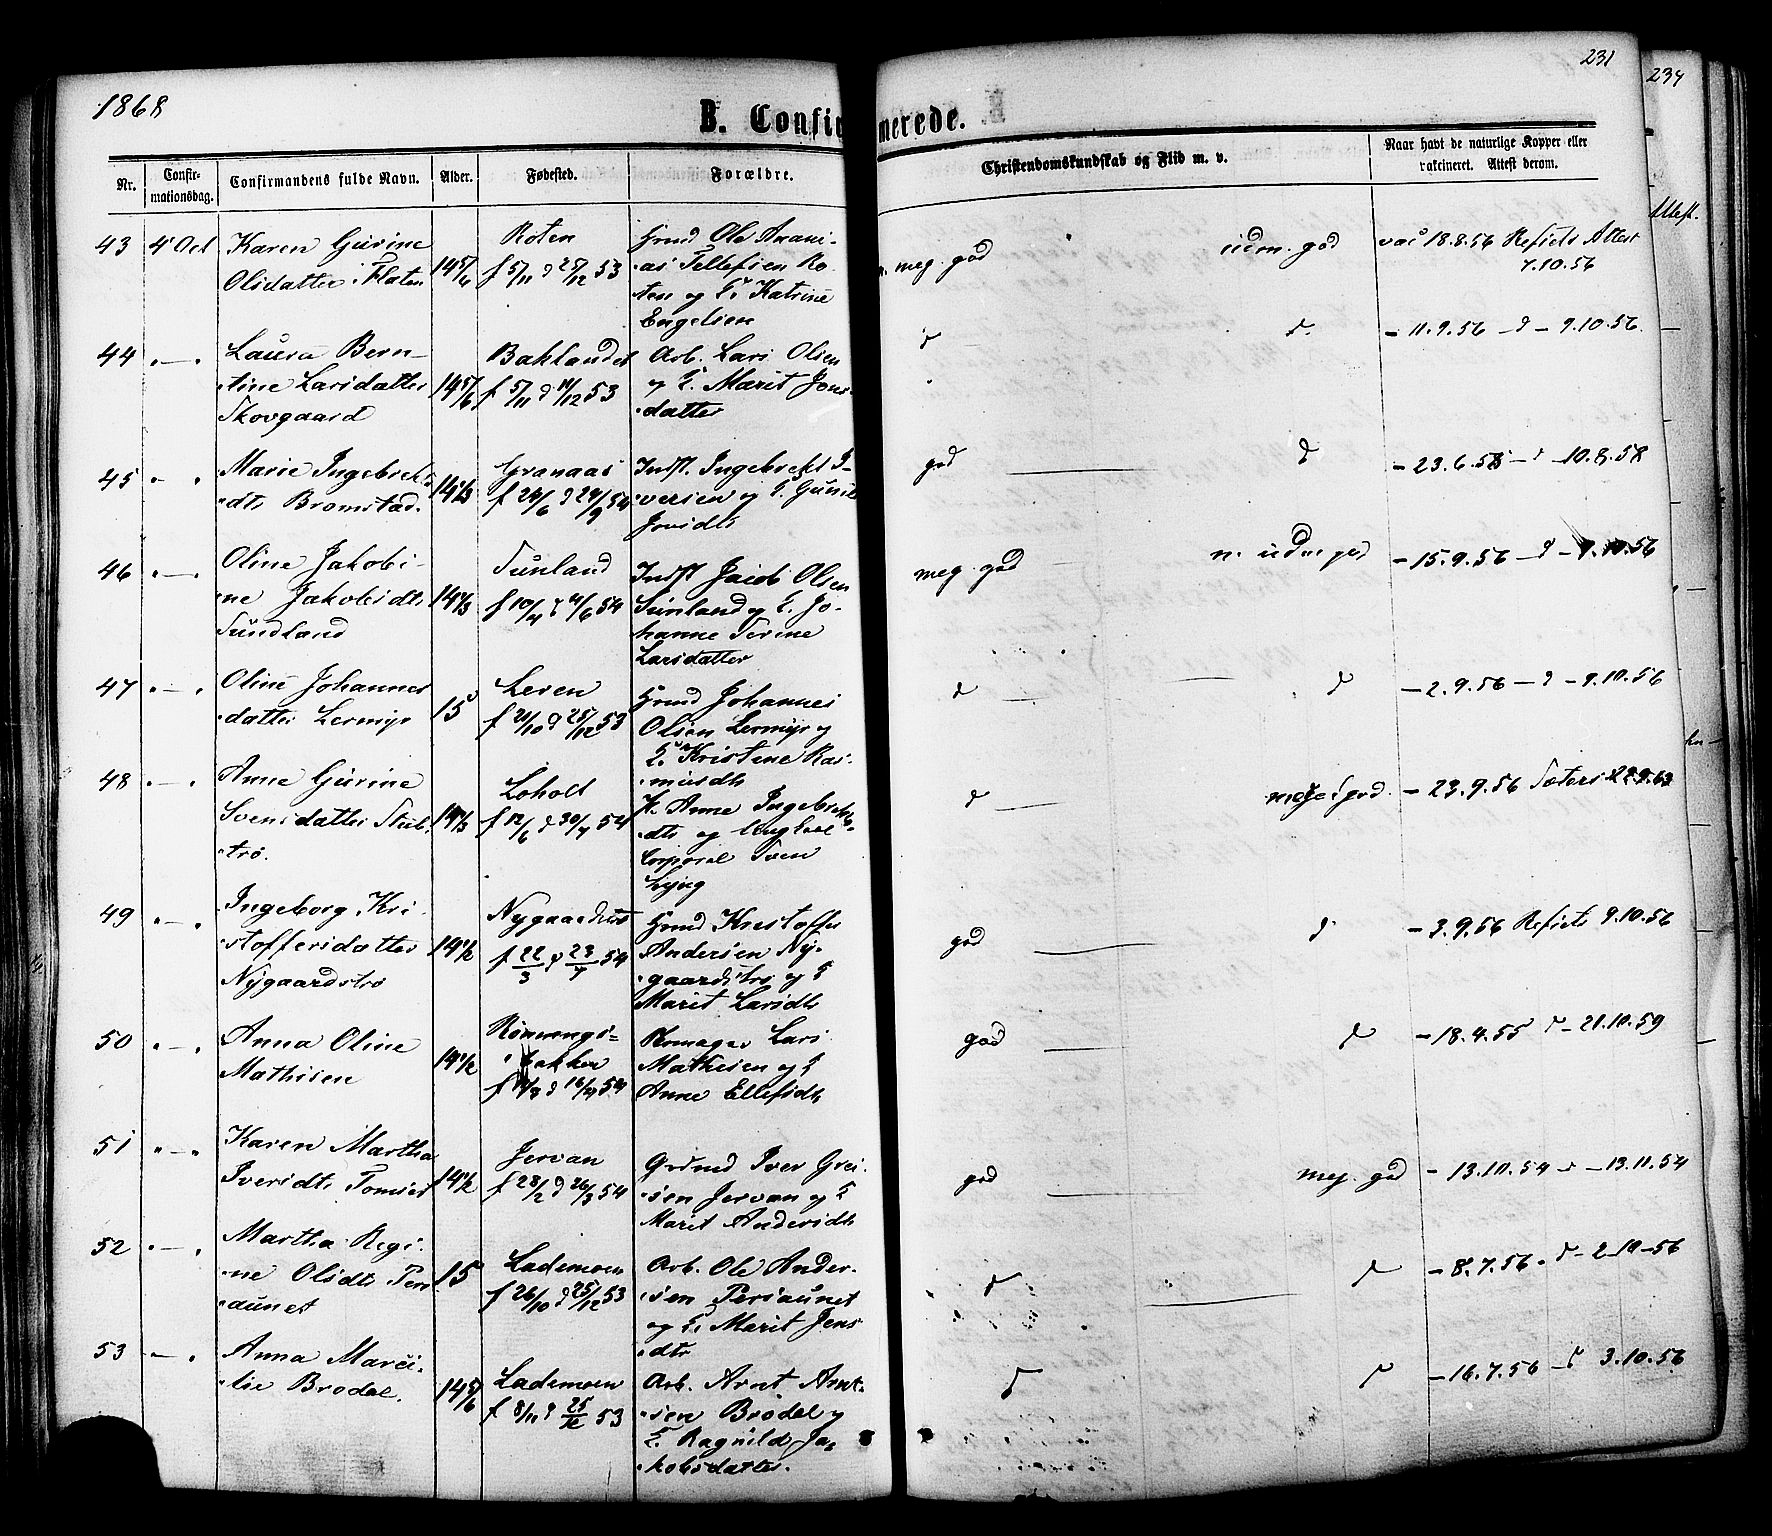 1868
231
234
B. Confirmerede.
Nr.
Confirmationsdag.
Confirmandens fulde Navn.
Alder.
Fødested.
Forældre.
Christendomskundskab og Flid m. v.
Naar havt de naturlige Kopper eller
vakcineret. Attest derom.
43 4 Oct Karen Gurine
Olsdatter Flaten
14 5/6
Roten
f 5/11 d 25/12 53
Grmd Ole Anani-
as Tellefsen Ro-
ten og H. Katrine
Engelsen
meg. god
udm. god
vac 18.8.56 Refsets Attest
7.10.56
44 " — " Laura Bern-
tine Larsdatter
Skovgaard
14 5/6
Baklandet
f 5/11 d 14/12 53
Arb. Lars Olsen
og H. Marit Jons-
datter
d
d.
- 11.9.56 - d - 9.10.56
45 " — " Marie Ingebrekts-
dtr Bromstad.
14 1/3
Granaas
f 26/6 d 24/9 54
Indst. Ingebrekt I-
versen og H. Gunil
Jonsdtr
god
d
- 23.6.58 - d - 10.8.58
46 " — " Oline Jakobi-
ne Jakobsdtr
Sundland
14 1/3
Sunland
f 10/4 d 11/6 54
Indst Jacob Olsen
Sunland og H. Jo-
hanne Serine
Larsdatter
meg. god
n. udm god
- 15.9.56 - d - 9.10.56
47 " — " Oline Johannes-
datter Lermyr
15
Leren
f 21/10 d 25/12 53
Grmd Johannes
Olsen Lermyr og
H. Kristine Ras-
musdtr
d
d
- 2.9.56 - d - 9.10.56
48 " — " Anne Gurine
Svensdatter Stub-
trø.
14 1/3
Loholt
f 12/6 d 30/7 54
P. Anne Ingebrekts-
dtr og Ungkarl
Corporal Sven
Lyng
d
meget god.
- 23.9.56 Sæters
49 " — " Ingeborg Kri-
stoffersdatter
Nygaardstrø
14 1/2
Nygaardstrø
f 22/3 d 23/4 54
Grmd Kristoffer
Andersen Ny-
gaardstrø og H
Marit Larsdtr
god
d
- 3.9.56 Refsets 9.10.56
50 " — " Anna Oline
Mathisen
14 1/2
Rønnings-
bakken
Lars
Mathisen og H
Anne Ellefsdtr
god
d
- 18.4.55 d - 21.10.59
51 " — " Karen Martha
Iversdtr Tomset
14 1/2
Jervan
f 28/2 d 26/3 54
Grmd Iver Grei-
sen Jervan og H
Marit Andersdtr
god
meg. god
- 13.10.54 d - 13.11.54
52 " — " Martha Regi-
ne Olsdtr Pers-
aunet
15
Lademoen
f 26/10 d 25/12 53
Arb. Ole Ander-
sen Persaunet
og H. Marit Jens-
dtr
d
d
- 8.7.56 d - 2.10.56
53 " — " Anna Marci-
lie Brodal.
14 5/6
Lademoen
f 8/11 d 25/12 53
Arb. Arnt Arnt-
sen Brodal og
H. Ragnild Ja-
kobsdatter.
d
d
- 16.7.56 - d 3.10.56
Attest.